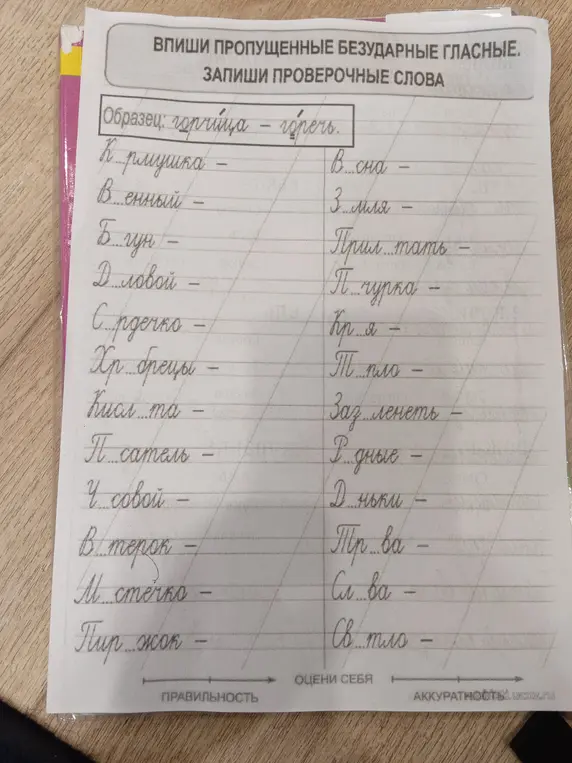 ВПИШИ ПРОПУЩЕННЫЕ БЕЗУДАРНЫЕ ГЛАСНЫЕ.
ЗАПИШИ ПРОВЕРОЧНЫЕ СЛОВА
Образец: горчи́ца – го́речь.
К...рмушка –
В...енный –
Б...гун –
Д...ловой –
С...рдечко –
Хр...брецы –
Кисл...та –
П...сатель –
Ч...совой –
В...терок –
М...стечко –
Пир...жок –
В...сна –
З...мля –
Прил...тать –
П...чурка –
Кр...я –
Т...пло –
Заз...ленеть –
Р...дные –
Д...ньки –
Тр...ва –
Сл...ва –
Св...тло –
ОЦЕНИ СЕБЯ
ПРАВИЛЬНОСТЬ
АККУРАТНОСТЬ